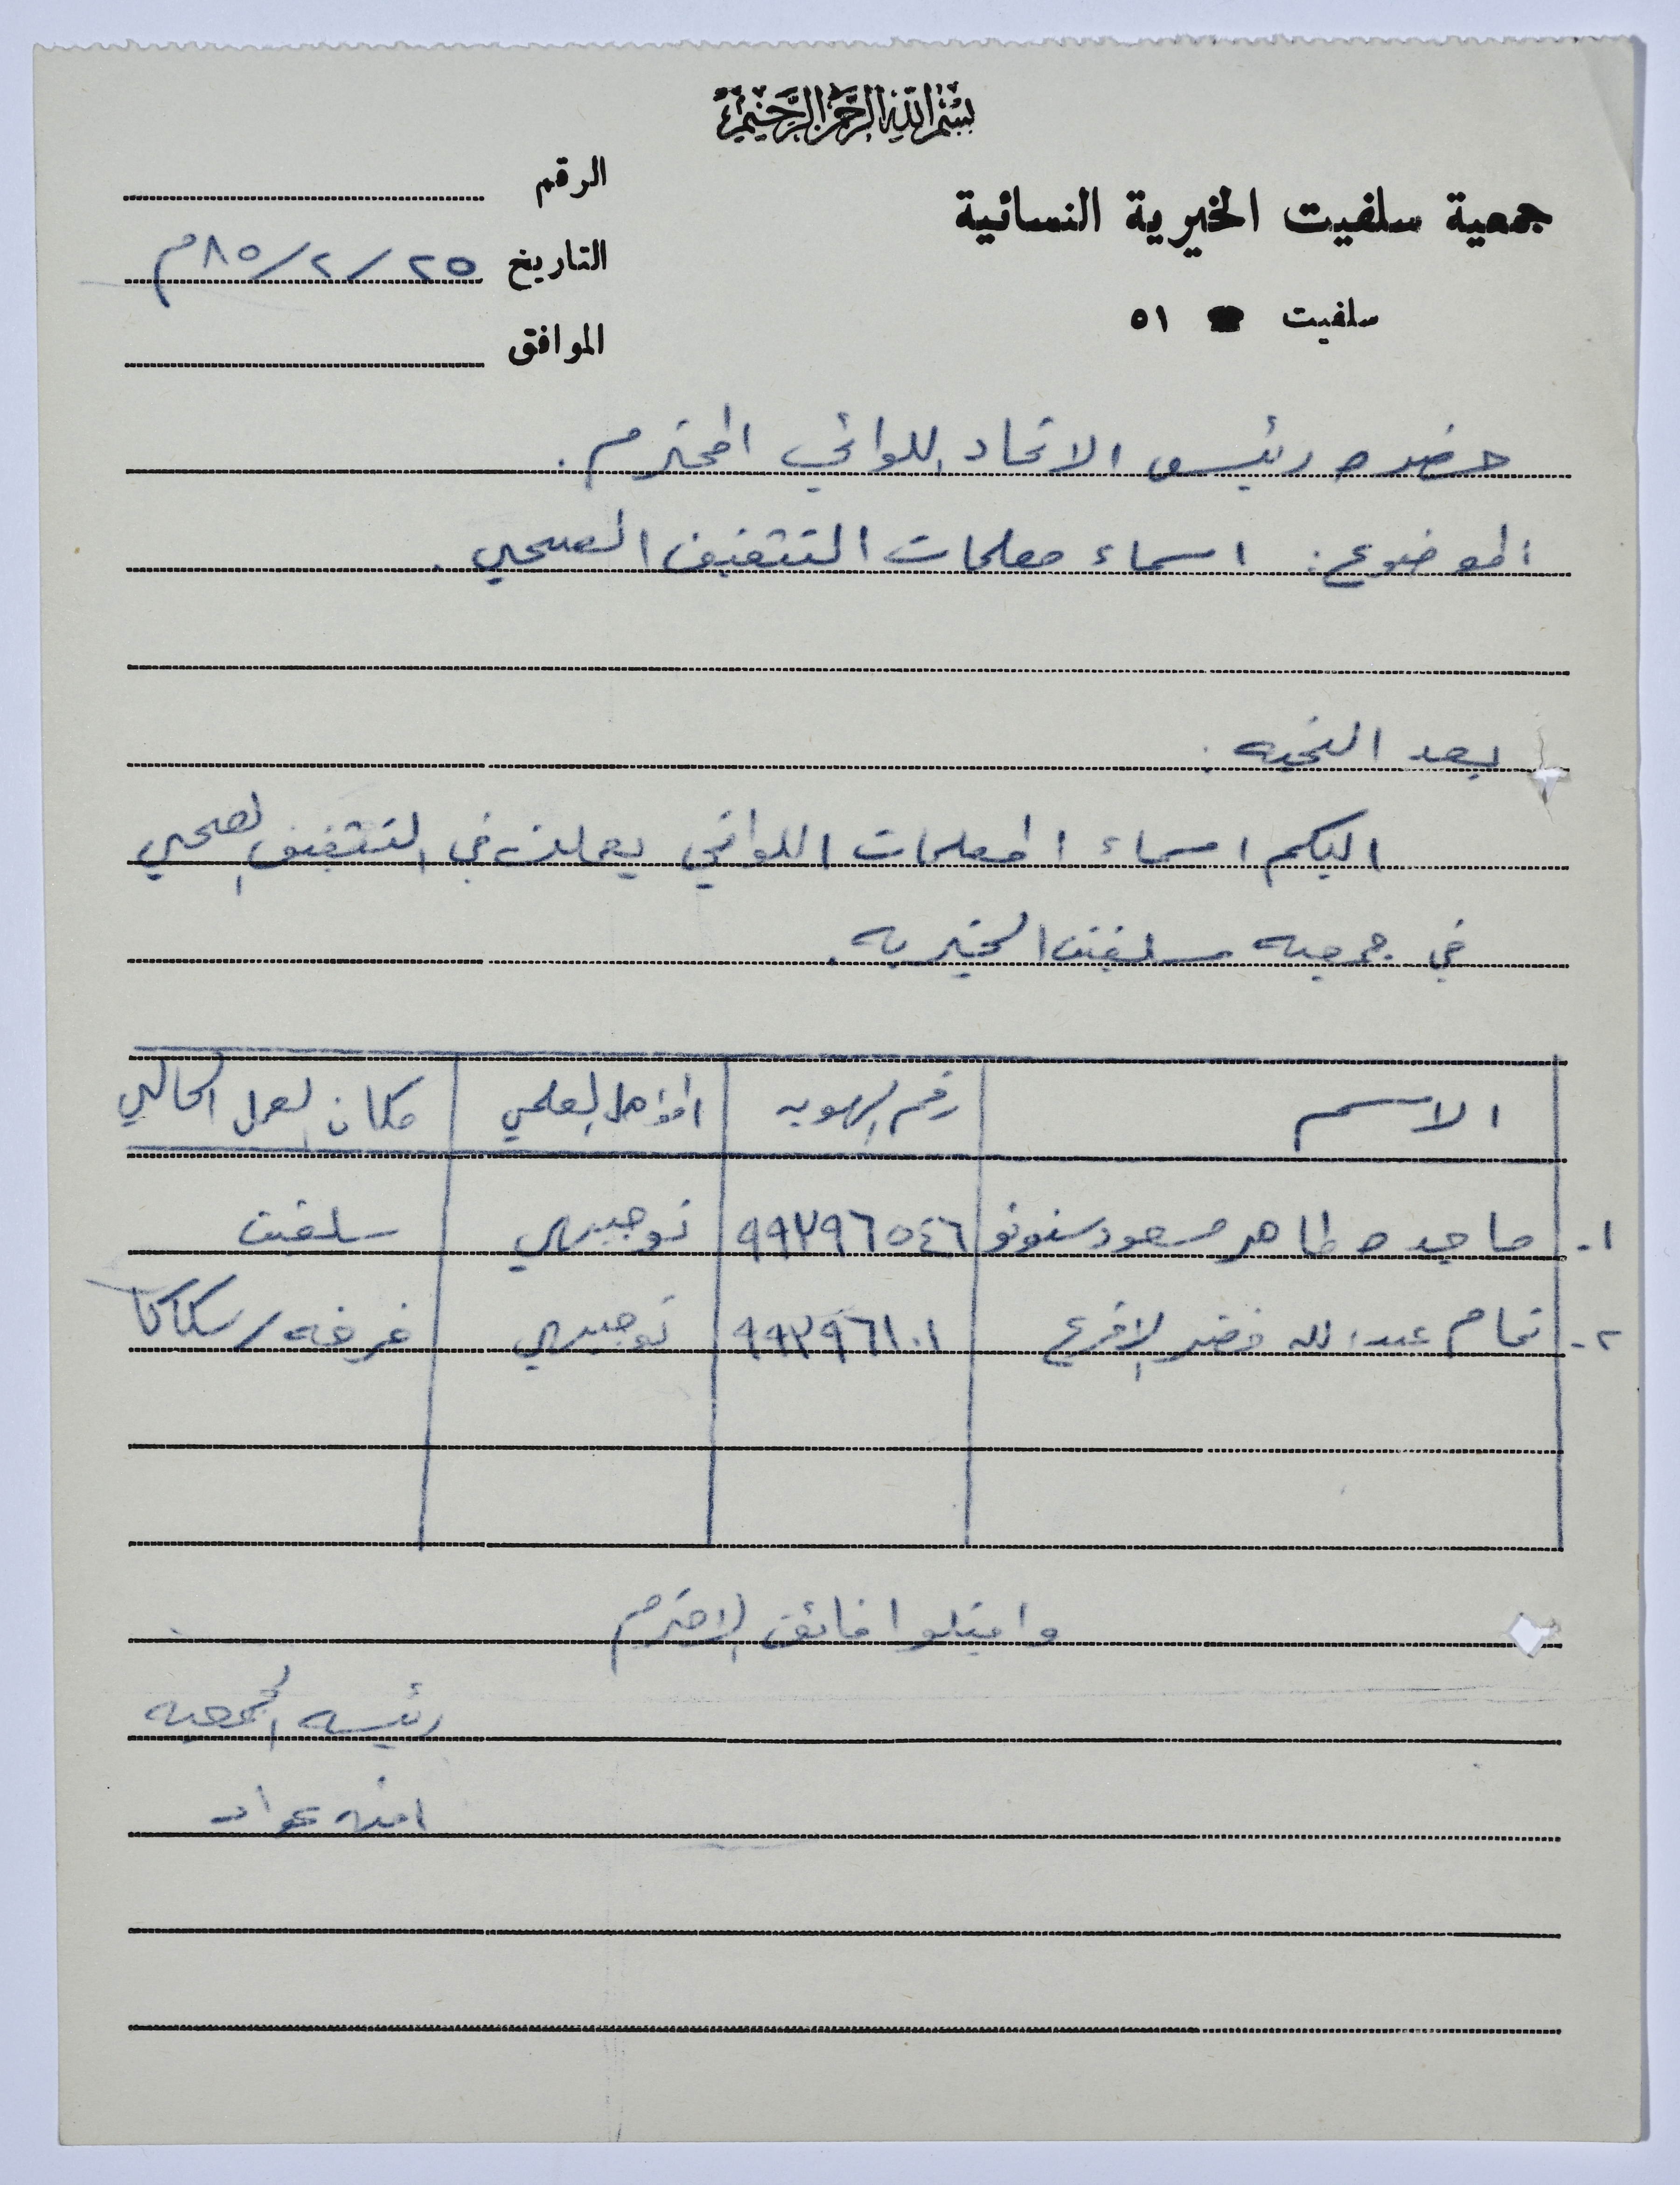 بسم الله الرحمن الرحيم
جمعية سلفيت الخيرية النسائية
سلفيت ☎ ٥١
الرقم
التاريخ ٢٥/٢/٨٥م
الموافق
حضرة رئيس الاتحاد اللوائي المحترم.
الموضوع: اسماء معلمات التثقيف الصحي.
بعد التحيه:
اليكم اسماء المعلمات اللواتي يعملن في التثقيف الصحي
في جمعيه سلفيت الخيريه.
الاسم رقم الهويه المؤهل العلمي مكان العمل الحالي
١. ماجده طاهر مسعود سنونو ٩٩٢٩٦٥٤٦ توجيهي سلفيت
٢. تمام عبدالله خضر الاقرع ٩٩٢٩٦١٠١ توجيهي غرفه/سكاكا
واقبلوا فائق الاحترم
رئيسه الجمعيه
امنه عواد